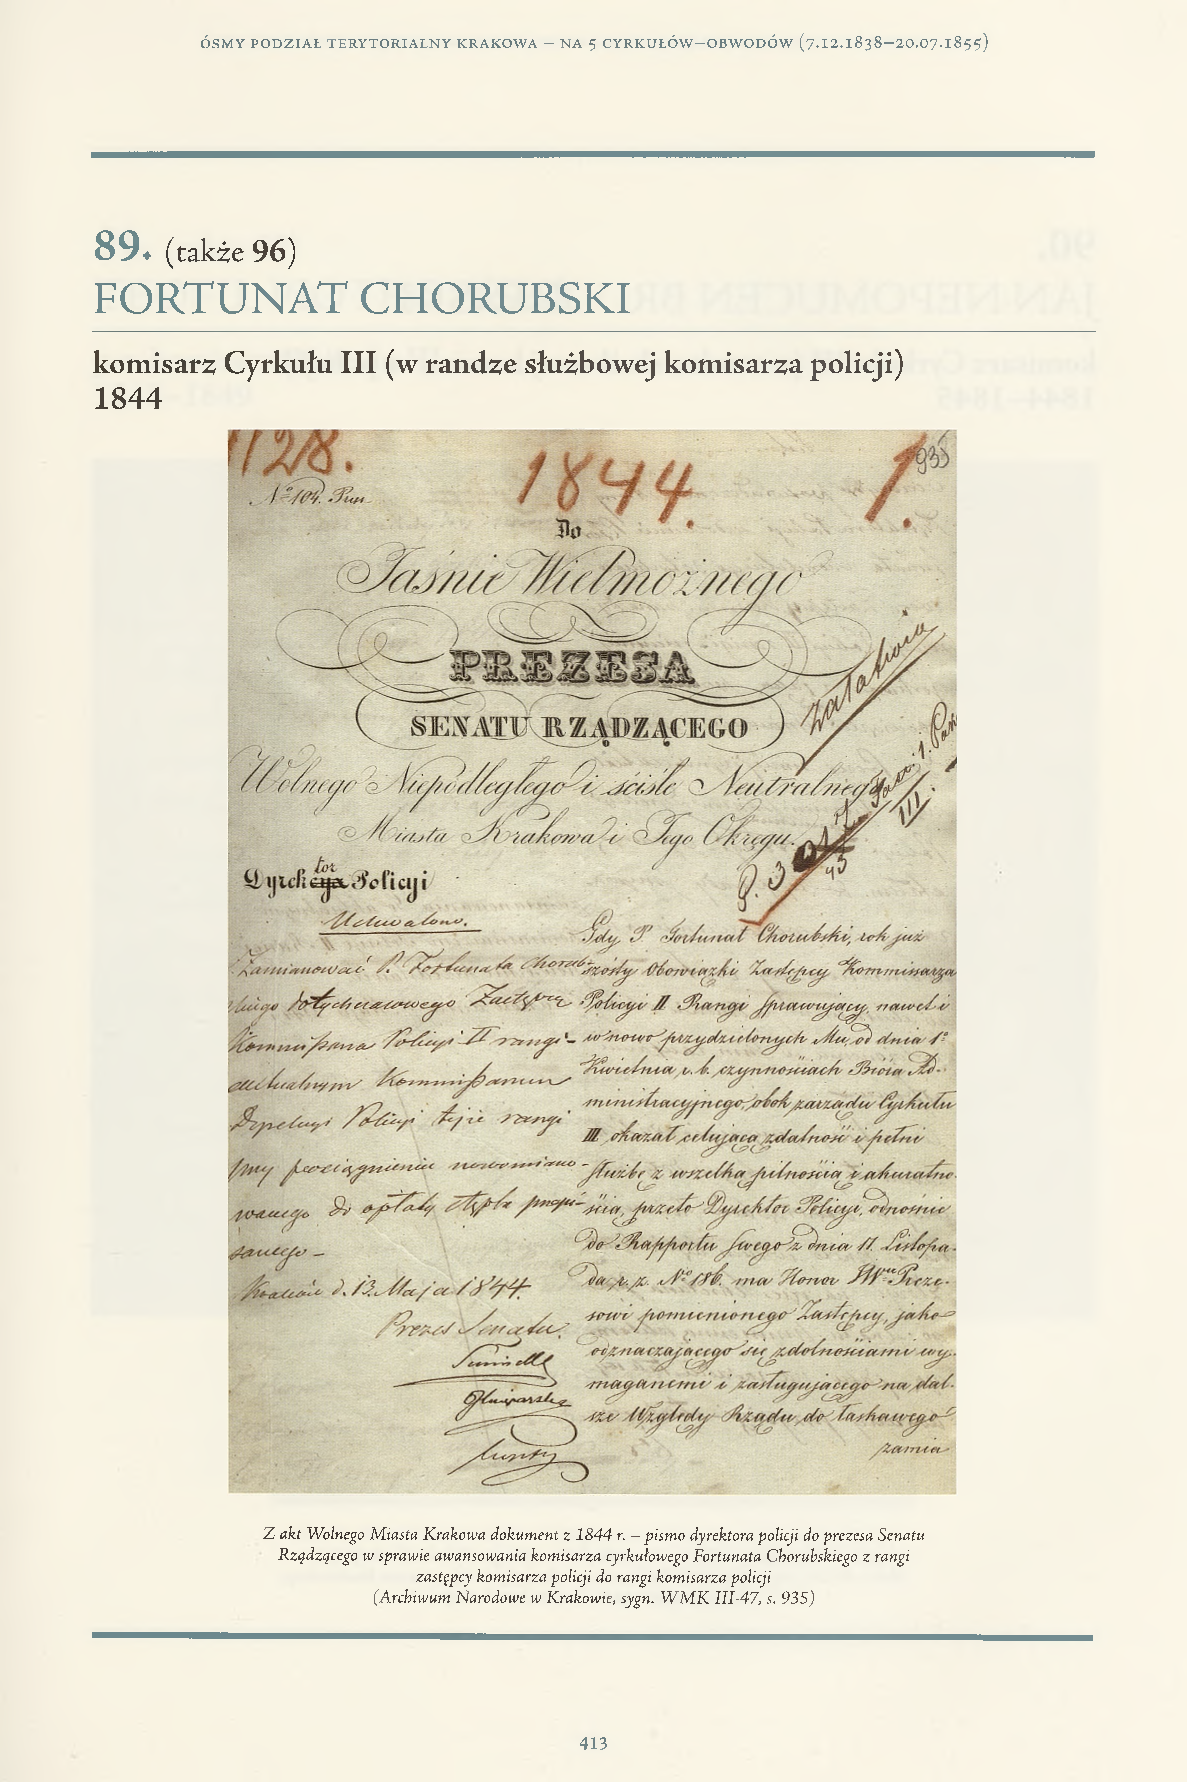 ÓSMY PODZIAŁ TERYTORIALNY KRAKOWA – NA 5 CYRKUŁÓW–OBWODÓW (7.12.1838–20.07.1855)
89. (także 96)
FORTUNAT CHORUBSKI
komisarz Cyrkułu III (w randze służbowej komisarza policji)
1844
1128. 1844. 1. 935
No 104. Pün
Do
Jaśnie Wielmożnego
PREZESA
SENATU RZĄDZĄCEGO
Wolnego Niepodległego i ściśle Neutralnego
Miasta Krakowa i Jego Okręgu.
załatwia
III.
Dyrekcya tor Policyi
Uchwalono.
Zamianować P. Fortunata Chorub-
skiego dotychczasowego Zastępcę
Kommissarza Policyi II rangi
aktualnym Kommissarzem
Policyi tejże rangi
przy pociągnieniu nowomiano-
wanego do opłaty stępla przepi-
sanego –
Kraków d. 13. Maja 1844.
Prezes Senatu.
Gdy P. Fortunat Chorubski, rok już
szósty Obowiązki Zastępcy Kommissarza
Policyi II Rangi sprawujący, nawet i
w nowo przydzielonych Mu, od dnia 1o
Kwietnia r. b. czynnościach Bióra Ad-
ministracyjnego, obok zarządu Cyrkułu
III okazał celującą zdatność i pełni
służbę z wszelką pilnością i akuratno-
ścią, przeto Dyrektor Policyi, odnośnie
do Rapportu swego z dnia 17. Listopa-
da r. z. No 186. ma Honor JW. Preze-
sowi pomienionego Zastępcy, jako
odznaczającego się zdolnościami wy-
maganemi i zasługującego na dal-
sze Względy Rządu do łaskawego
zamia
Z akt Wolnego Miasta Krakowa dokument z 1844 r. – pismo dyrektora policji do prezesa Senatu
Rządzącego w sprawie awansowania komisarza cyrkułowego Fortunata Chorubskiego z rangi
zastępcy komisarza policji do rangi komisarza policji
(Archiwum Narodowe w Krakowie, sygn. WMK III-47, s. 935)
413